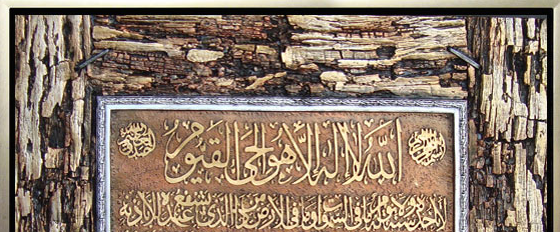 الله لا اله الا هو الحي القيوم
لا تاخذه سنة ولا نوم له ما في السموات وما في الارض من ذا الذي يشفع عنده الا باذنه